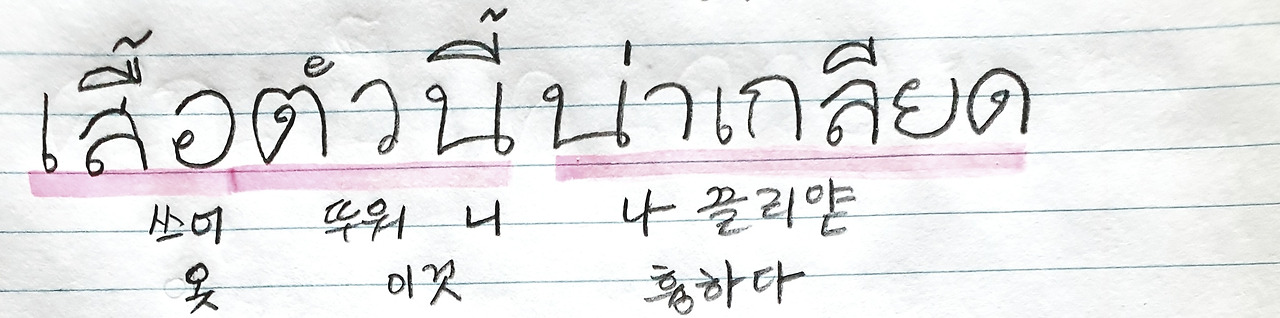 เสื้อตัวนี้ น่าเกลียด
쓰어 뚜워 니 나 끌리얃
옷 이것 흉하다